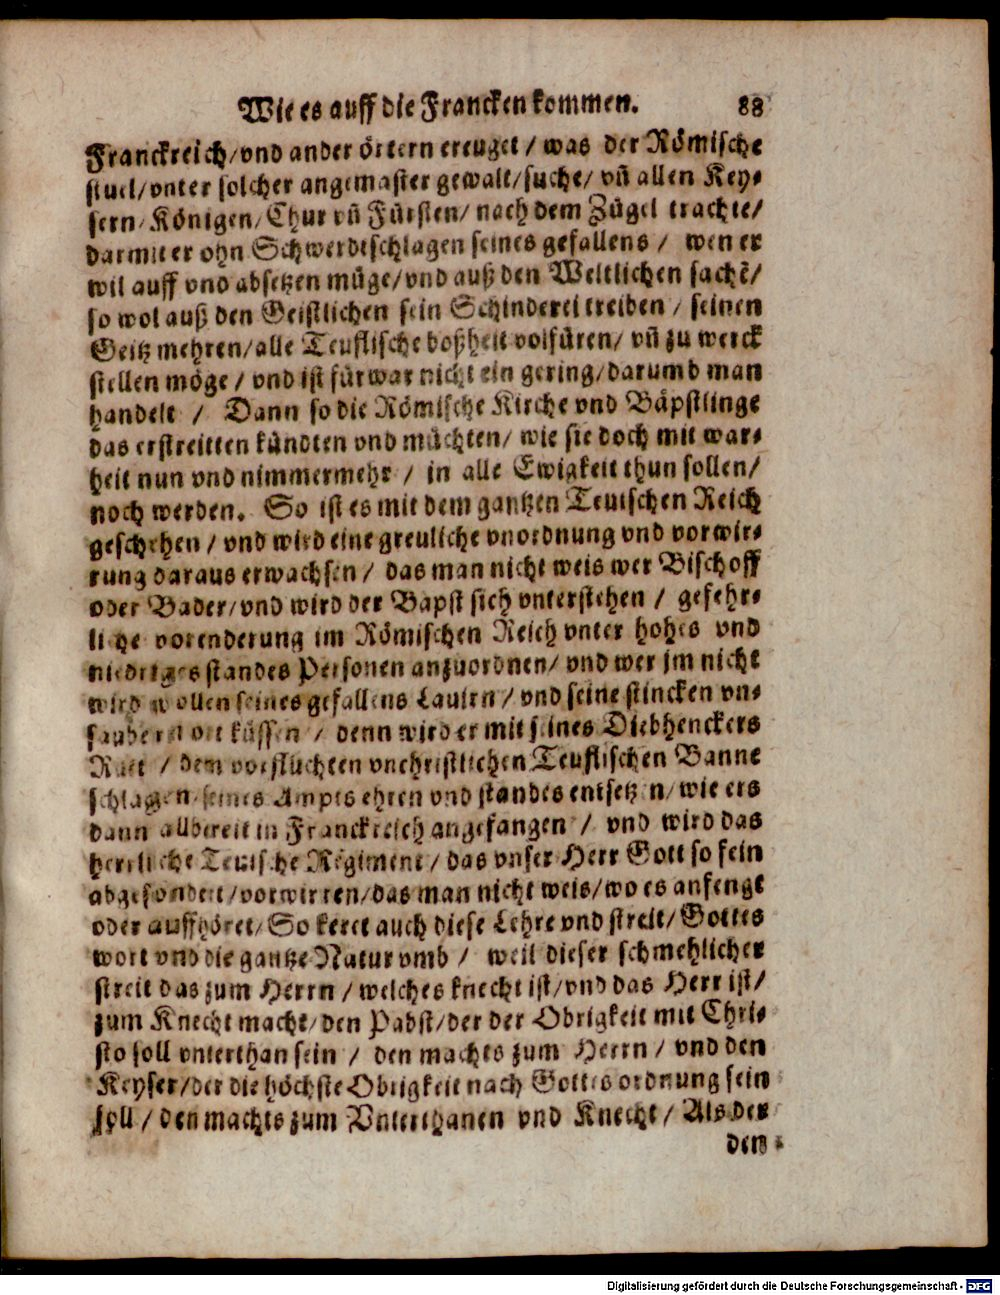 Wie es auff die Francken kommen. 88
Franckreich/vnd ander örtern ereuget / was der Römische
stuel/vnter solcher angemaster gewalt/suche/ vñ allen Key-
sern/Königen/Chur vñ Fürsten/ nach dem Zügel trachte/
darmit er ohn Schwerdtschlagen seines gefallens / wen er
wil auff vnd absetzen müge/vnd auß den Weltlichen sachẽ/
so wol auß den Geistlichen sein Schinderei treiben / seinen
Geitz mehren/alle Teuflische boßheit volfüren/ vñ zu werck
stellen möge / vnd ist fürwar nicht ein gering/darumb man
handelt / Dann so die Römische Kirche vnd Bäpstlinge
das erstreitten kündten vnd müchten/ wie sie doch mit war-
heit nun vnd nimmermehr / in alle Ewigkeit thun sollen/
noch werden. So ist es mit dem gantzen Teutschen Reich
geschehen / vnd wird eine greuliche vnordnung vnd vorwir-
rung daraus erwachsen / das man nicht weis wer Bischoff
oder Bader/vnd wird der Bapst sich vnterstehen / gefehr-
liche vorenderung im Römischen Reich vnter hohes vnd
niedriges standes Personen anzuordnen/ vnd wer jm nicht
wird wollen seines gefallens / vnd seine stincken vn-
küssen / denn wird er mit seines Diebhenckers
/ dem vorfluchten vnchristlichen Teuflischen Banne
schlagen seines Ampts ehren vnd standes entsetzen/ wie ers
dann allbereit in Franckreich angefangen / vnd wird das
herrliche Teutsche Regiment / das vnser Herr Gott so fein
abgesondert/vorwirren/das man nicht weis/wo es anfengt
oder auffhöret/ So keret auch diese Lehre vnd streit/ Gottes
wort vnd die gantze Natur vmb / weil dieser schmehlicher
streit das zum Herrn / welches knecht ist/vnd das Herr ist/
zum Knecht macht/den Pabst/der der Obrigkeit mit Chri-
sto soll vnterthan sein / den machts zum Herrn / vnd den
Keyser/der die höchste Obrigkeit nach Gottes ordnung sein
soll / den machts zum Vnterthanen vnd Knecht / Als der
den
Digitalisierung gefördert durch die Deutsche Forschungsgemeinschaft - DFG